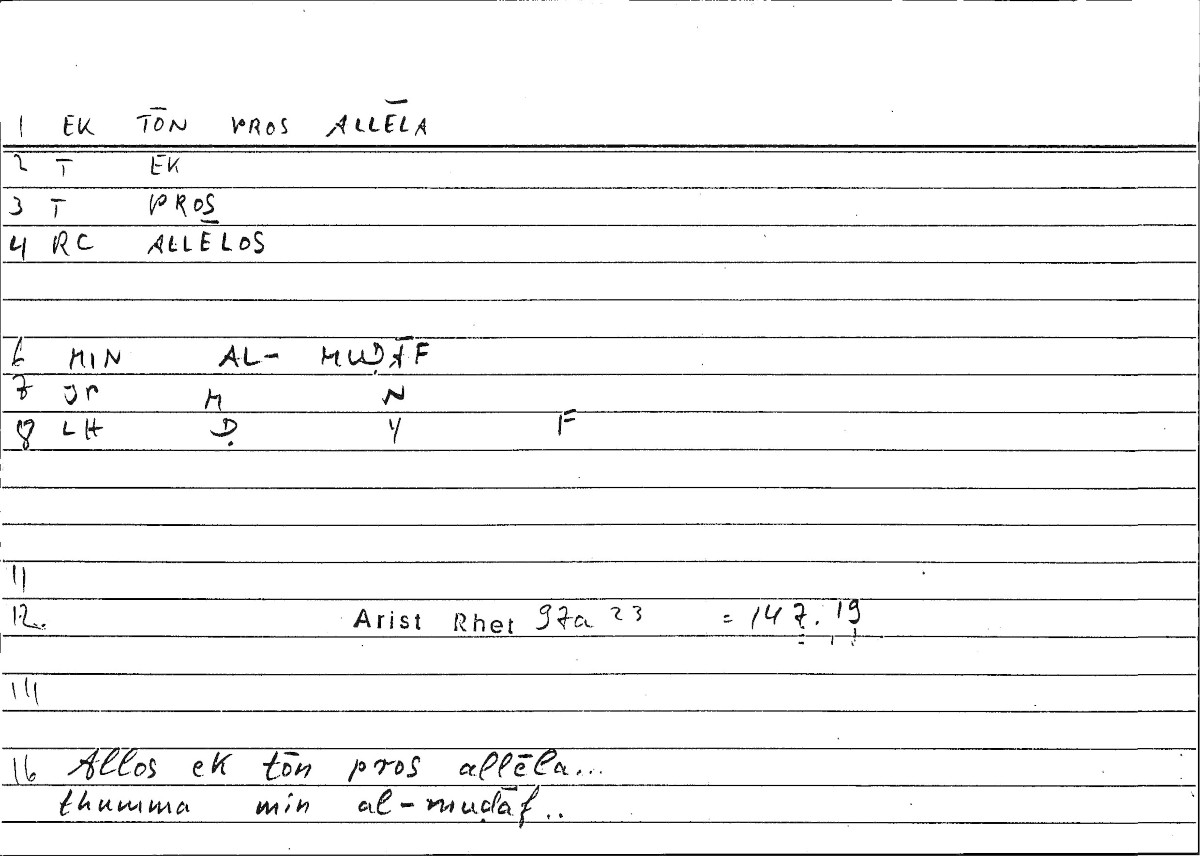 1 EK TŌN PROS ALLĒLA
2 T EK
3 T PROS
4 RC ALLĒLOS
6 MIN AL- MUḌĀF
7 JP M N
8 LH Ḍ Y F
11
12. Arist Rhet 97a 23 = 147.19
14
16 Allos ek tōn pros allēla...
thumma min al-muḍāf..